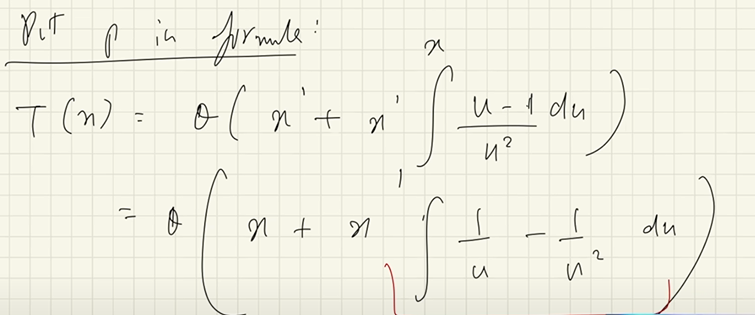 Put p in formula:
T(x) = θ(x¹ + x¹ ∫₁ˣ (u-1)/u² du)
= θ(x + x ∫ 1/u - 1/u² du)